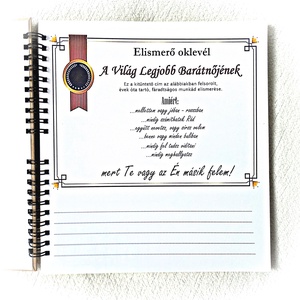 Elismerő oklevél
A Világ Legjobb Barátnőjének
Ez a kitüntető cím az alábbiakban felsorolt,
évek óta tartó, fáradtságos munkád elismerése.
Amiért:
...mellettem vagy jóban - rosszban
...mindig számíthatok Rád
...együtt nevetsz, vagy sírsz velem
...benne vagy minden buliban
...mindig fel tudsz vidítani
...mindig meghallgatsz
mert Te vagy az Én másik felem!